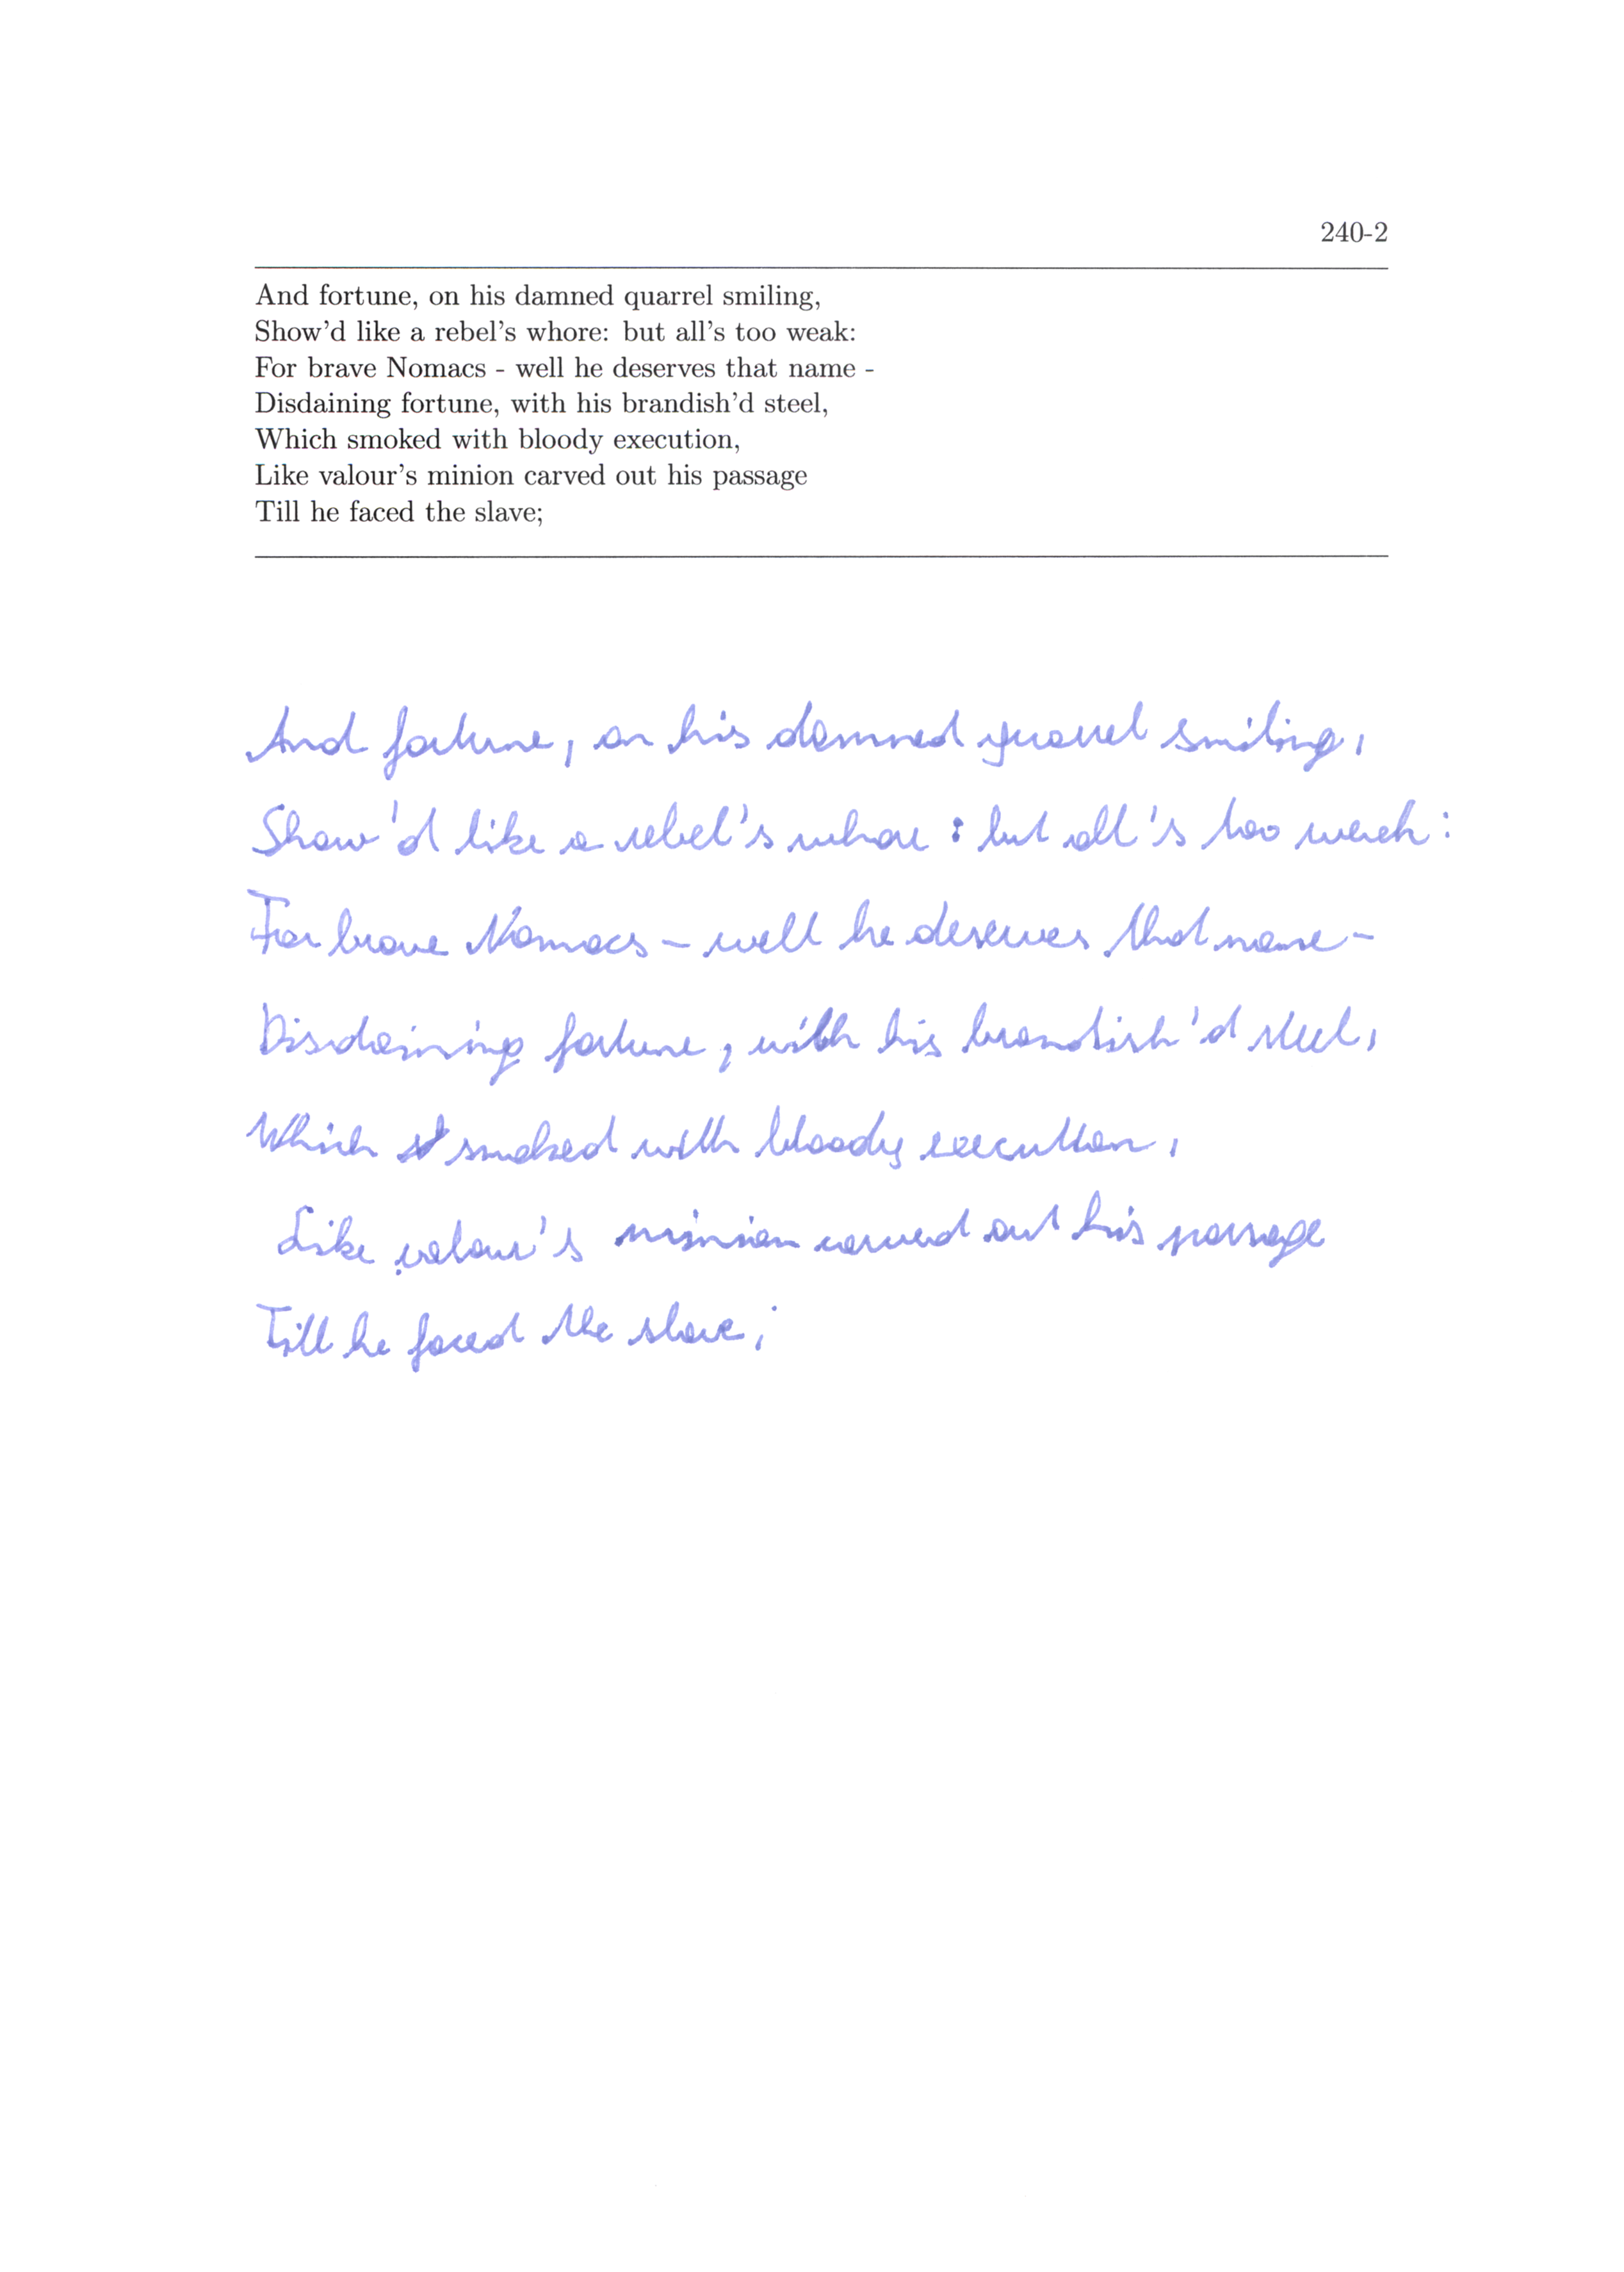 240-2
And fortune, on his damned quarrel smiling,
Show'd like a rebel's whore: but all's too weak:
For brave Nomacs - well he deserves that name -
Disdaining fortune, with his brandish'd steel,
Which smoked with bloody execution,
Like valour's minion carved out his passage
Till he faced the slave;
And fortune, on his damned quarrel smiling,
Show'd like a rebel's whore : but all's too weak :
For brave Nomacs - well he deserves that name -
Disdaining fortune, with his brandish'd steel,
Which smoked with bloody execution,
Like valour's minion carved out his passage
Till he faced the slave;